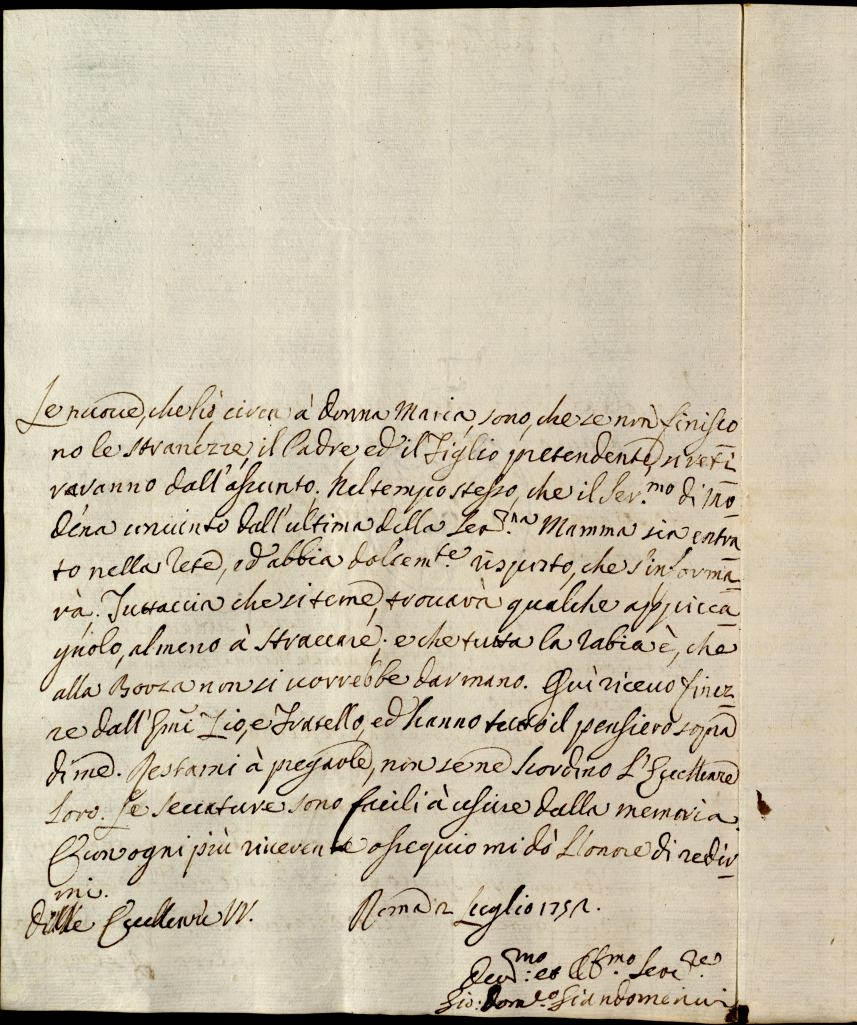 Le nuove, che hò circa à donna Maria, sono, che se non finisco
no le stranezze, il Padre, ed il Figlio pretendente, si reti
raranno dall'assunto. Nel tempo stesso, che il Ser.mo di Mo
dena convinto dall'ultima della Ser.ma Mamma sia entra
to nella Rete, ed abbia dolcem.te risposto, che s'informa
rà. Tuttaccia che si teme, trovarà qualche appicca
gnolo, almeno à straccare; e che tutta la rabia è, che
alla Borza non si vorrebbe dar mano. Quì ricevo finez
ze dall'Emi Zio, e Fratello, ed hanno tutto il pensiero sopra
di me. Restami à pregarle, non se ne scordino L'Eccellenze
Loro. Le seccature sono facili à uscire dalla memoria.
Con ogni più riverente ossequio mi dò L'onore di redir
mi.
delle Eccellenze VV. Roma 2 Luglio 1752.
Dev.mo et Obb.mo Serv.re
Gio: Dom.co Giandomenici